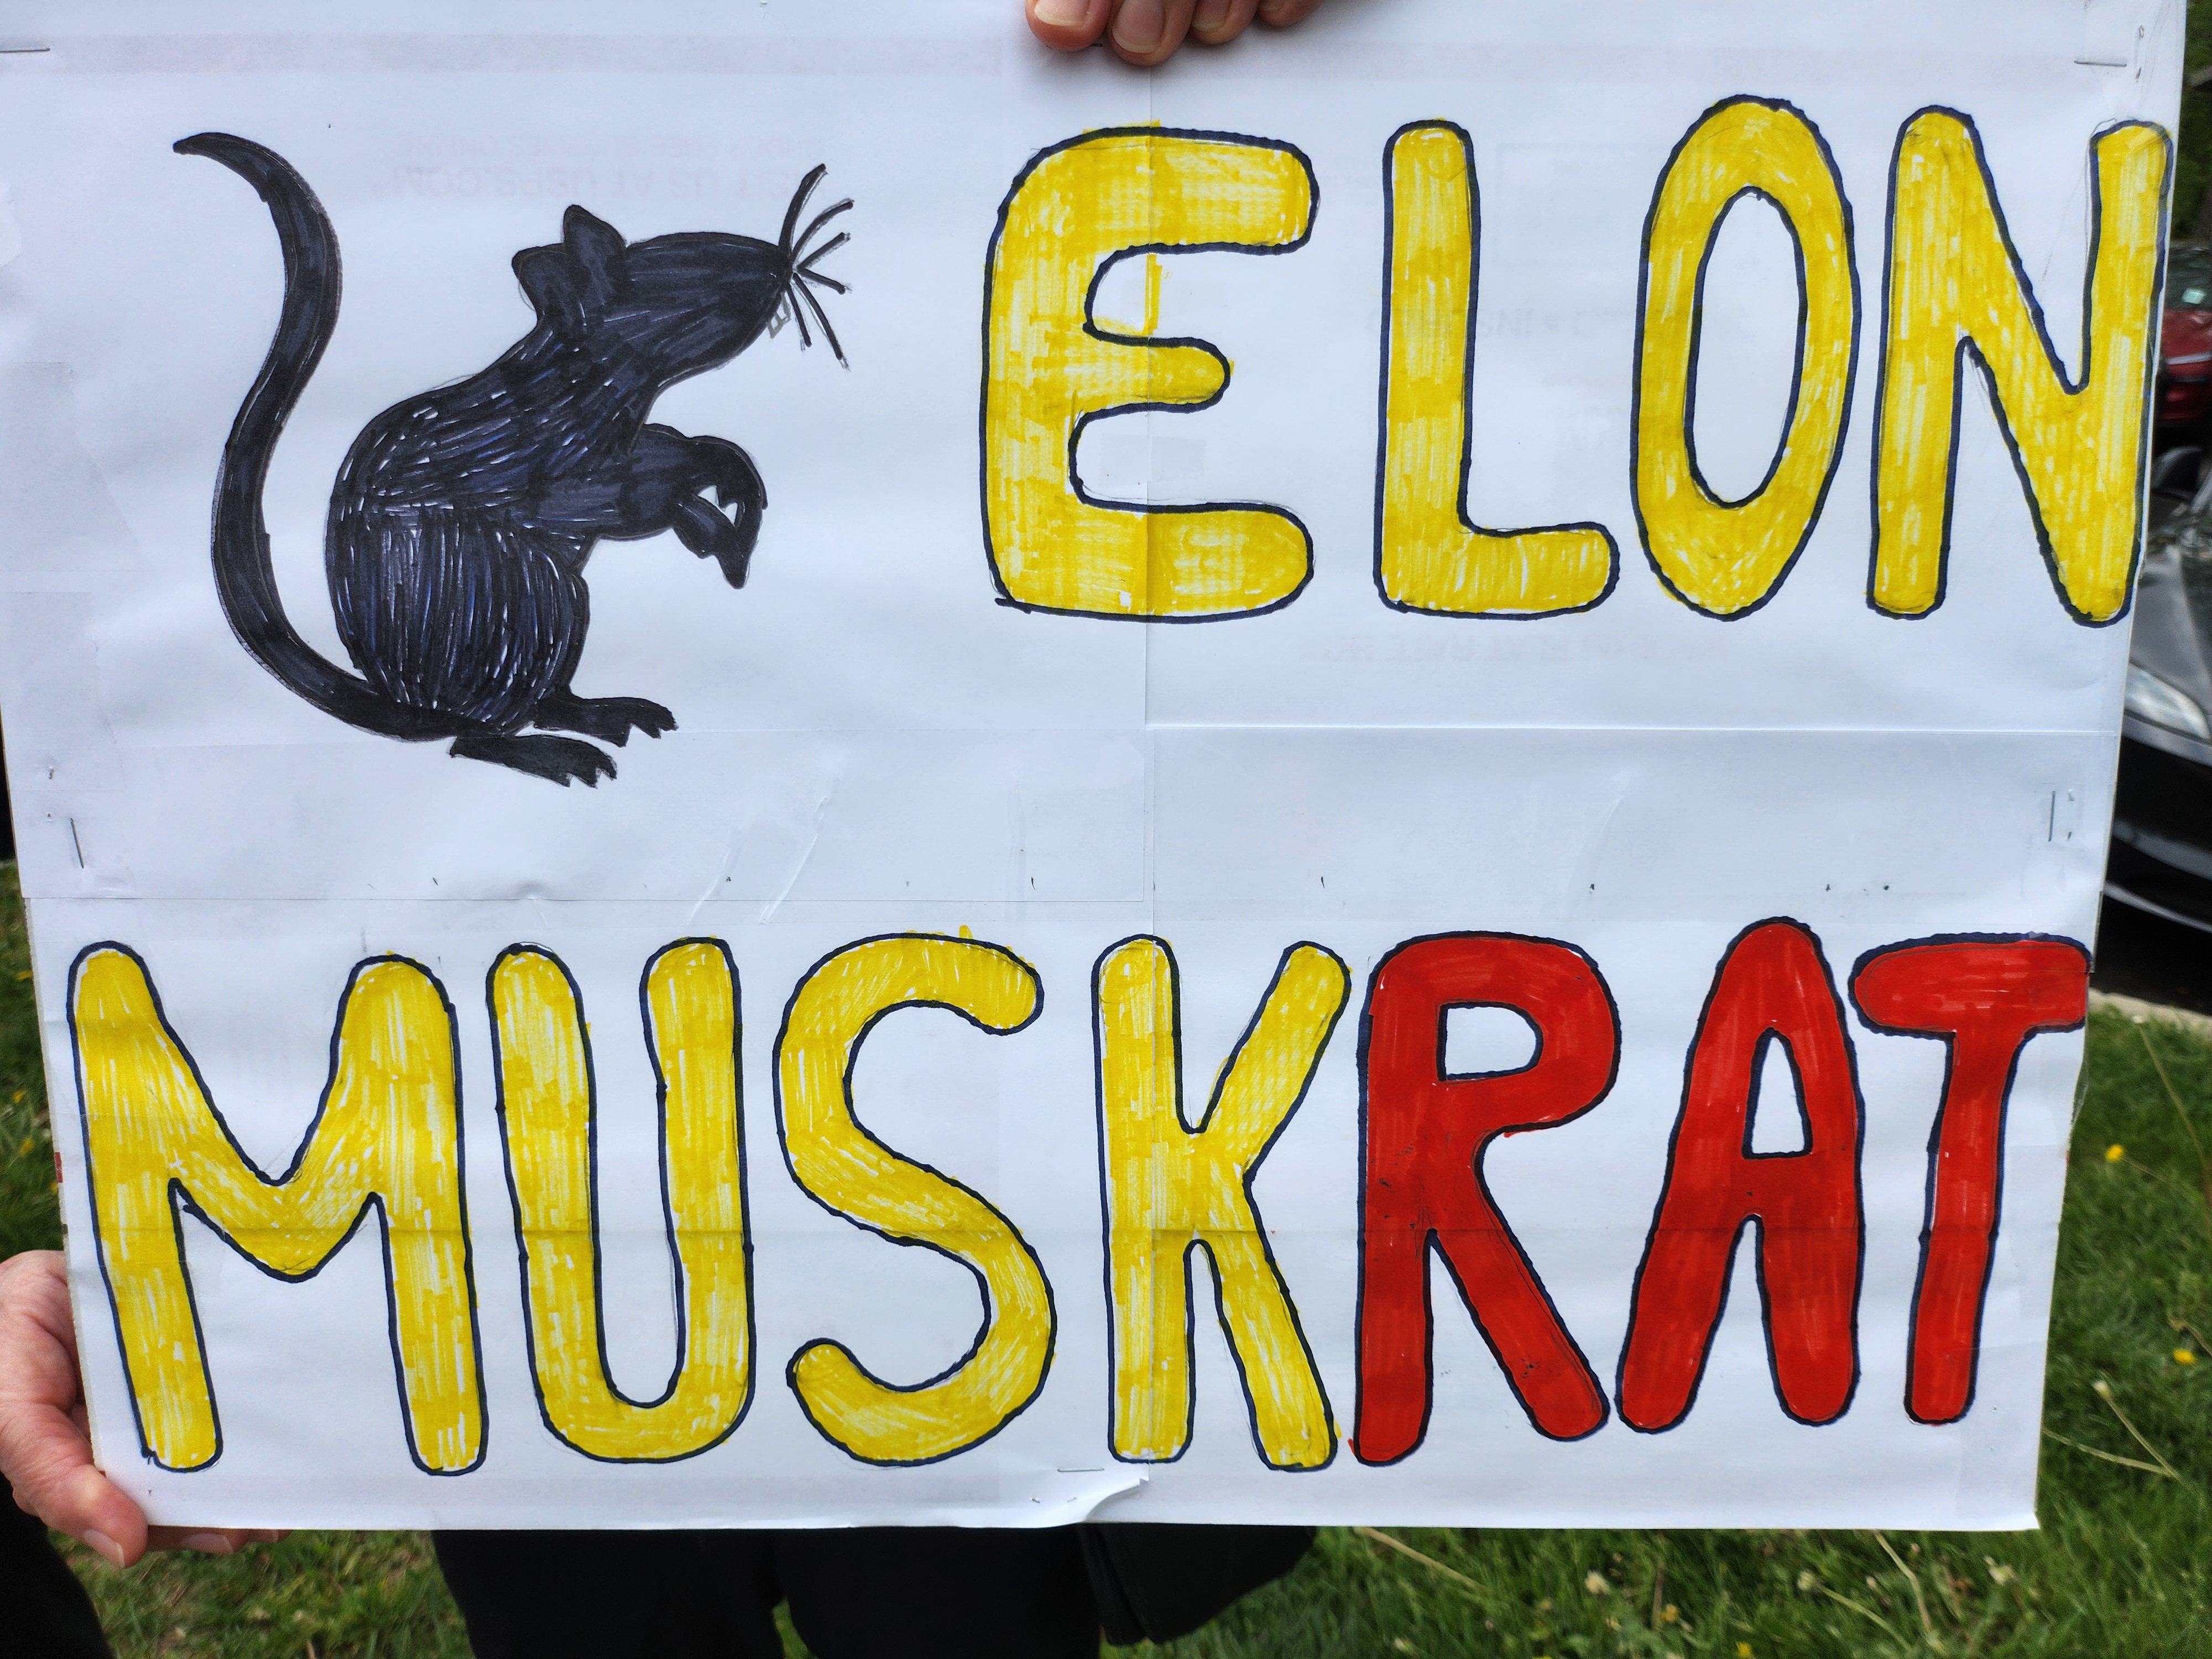 ELON
MUSKRAT